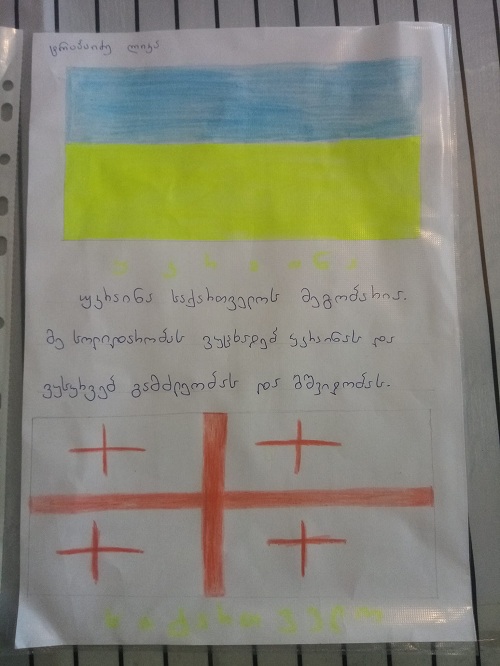 ლიკა
უკრაინა
უკრაინა საქართველოს მეგობარია.
მე სოლიდარობას ვუცხადებ უკრაინას და
ვუსურვებ გამძლეობას და მშვიდობას.
საქართველო